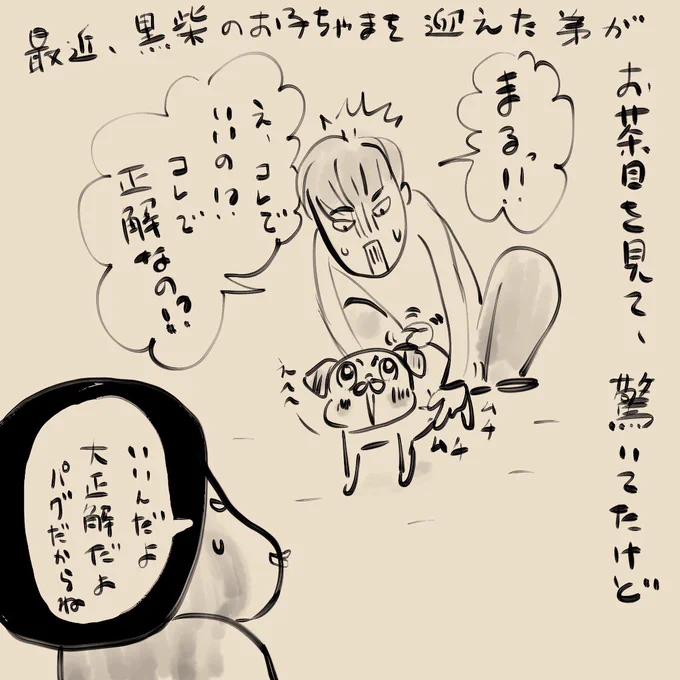 最近、黒柴のお子ちゃまを迎えた弟が
お茶目を見て、驚いてたけど
まるっ!!
え、コレで
いいの!?
コレで
正解なの!?
えへへ
ムチ
ムチ
いいんだよ
大正解だよ
パグだからね